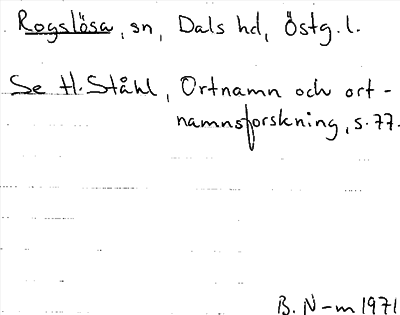 Rogslösa, sn, Dals hd, Östg. l.
Se H. Ståhl, Ortnamn och ort-
namnsforskning, s. 77.
B. N-m 1971